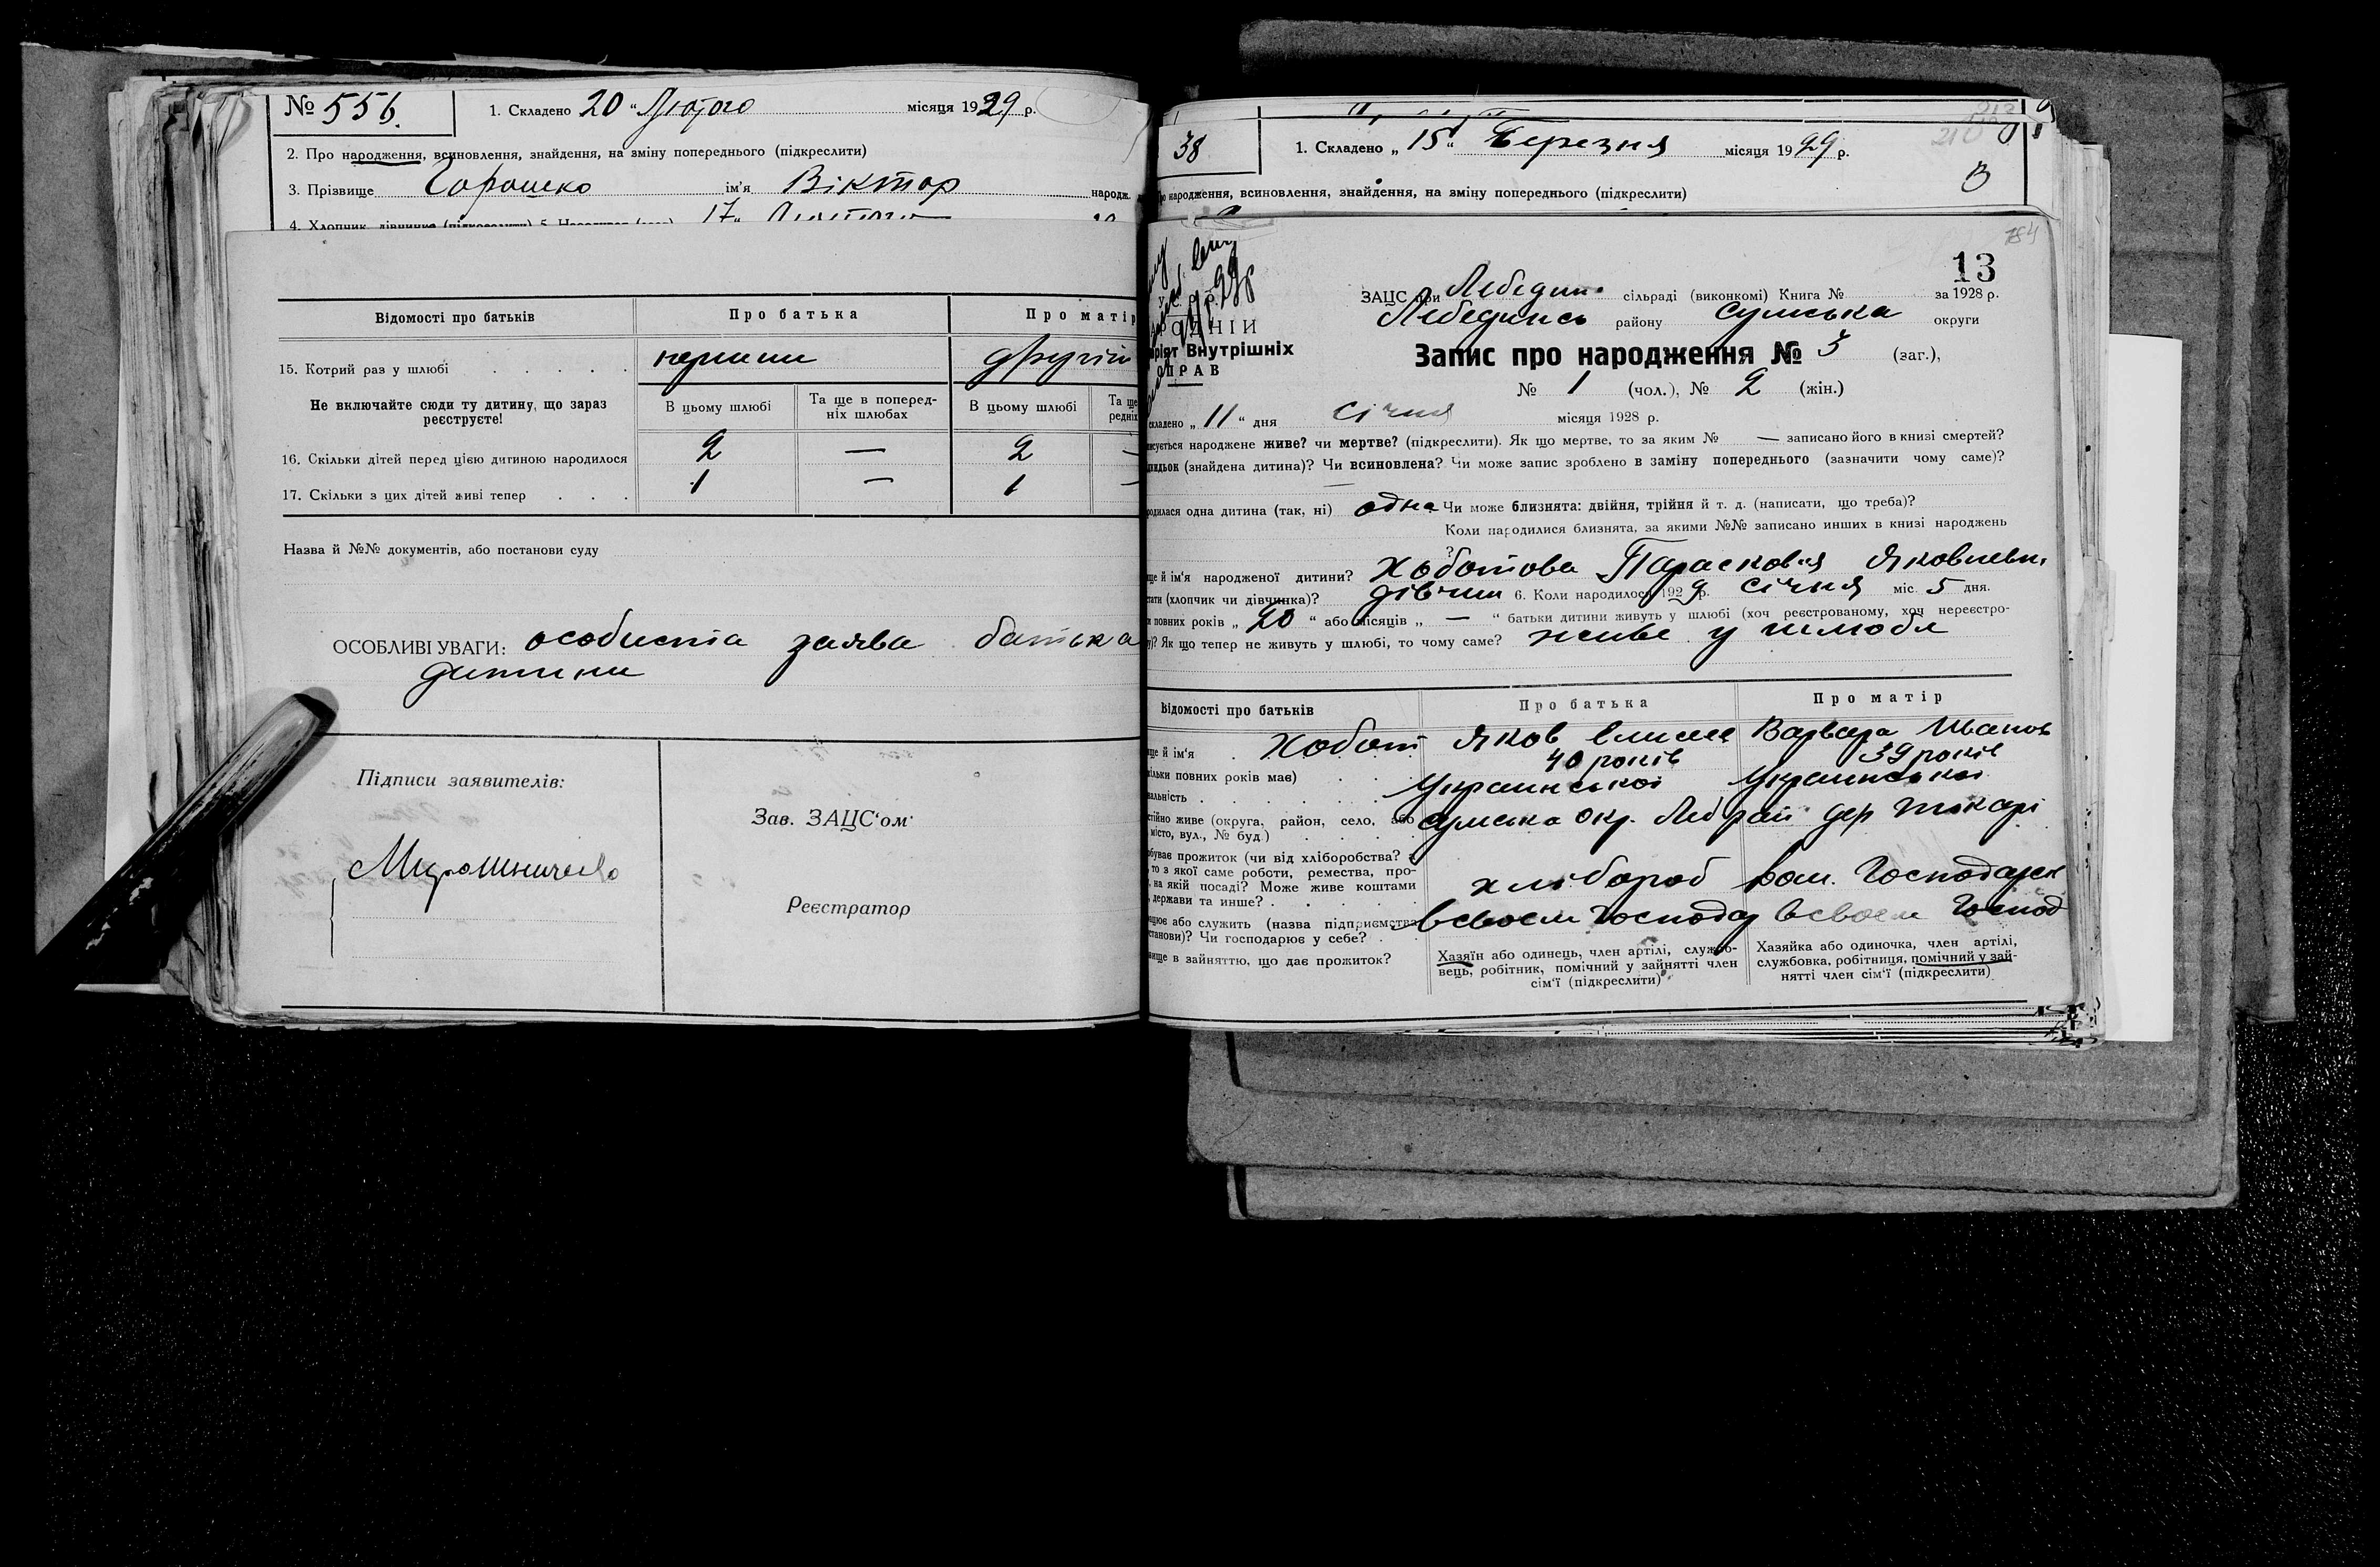 № 556. 1. Складено 20 "Лютого місяця 1929 р.
2. Про народження, всиновлення, знайдення, на зміну попереднього (підкреслити)
3. Прізвище Горошко ім'я Віктор народж.
4. Хлопчик, дівчинка (підкреслити) 17" Лютого
Відомості про батьків Про батька Про матір
15. Котрий раз у шлюбі . . . . . другий
Не включайте сюди ту дитину, що зараз реєструєте!
В цьому шлюбі Та ще в поперед-
ніх шлюбах В цьому шлюбі Та ще
редніх
16. Скільки дітей перед цією дитиною народилося 2 — 2 —
17. Скільки з цих дітей живі тепер . . . 1 — 1 —
Назва й №№ документів, або постанови суду
ОСОБЛИВІ УВАГИ: особиста заява батька
дитини
Підписи заявителів:
Зав. ЗАЦС'ом
Мирошниченко
Реєстратор
38 1. Складено „ 15 " Березня місяця 1929 р.
народження, всиновлення, знайдення, на зміну попереднього (підкреслити)
В
13
ЗАЦС при Лебедин. сільраді (виконкомі) Книга № за 1928 р.
району Сумська округи
Внутрішніх
СПРАВ
Запис про народження № 3 (заг.),
№ 1 (чол.), № 2 (жін.)
складено „ 11 " дня Січня місяця 1928 р.
народжене живе? чи мертве? (підкреслити). Як що мертве, то за яким № — записано його в книзі смертей?
(знайдена дитина)? Чи всиновлена? Чи може запис зроблено в заміну попереднього (зазначити чому саме)?
—
одилася одна дитина (так, ні) одна Чи може близнята: двійня, трійня й т. д. (написати, що треба)?
Коли народилися близнята, за якими №№ записано инших в книзі народжень
?
ще й ім'я народженої дитини? Хоботова Парасковія Яковлевн.
стати (хлопчик чи дівчинка)? дівчин 6. Коли народилося 1929 р. Січня міс. 5 дня.
повних років „ 20 " або місяців „ — " батьки дитини живуть у шлюбі (хоч реєстрованому, хоч нереєстро-
у)? Як що тепер не живуть у шлюбі, то чому саме? живе у шлюбі
Відомості про батьків Про батька Про матір
ще й ім'я . Хобот Яков Варвара Иванов
ільки повних років має) . . . 40 років 39 років
альність . . . . . . Украинськоі Украинськоі
стійно живе (округа, район, село, або
місто, вул., № буд.) . . . . Сумська окр. Леб рай дер Токарі
обуває прожиток (чи від хліборобства?
то з якої саме роботи, ремества, про-
на якій посаді? Може живе коштами
держави та инше? . . . . . хлібороб дом. Господарск
ацює або служить (назва підприємства
станови)? Чи господарює у себе? . всвоем господар всвоем Господ
вище в зайняттю, що дає прожиток?
Хазяїн або одинець, член артілі, службо-
вець, робітник, помічний у зайнятті член
сім'ї (підкреслити)
Хазяйка або одиночка, член артілі,
службовка, робітниця, помічний у зай-
нятті член сім'ї (підкреслити)